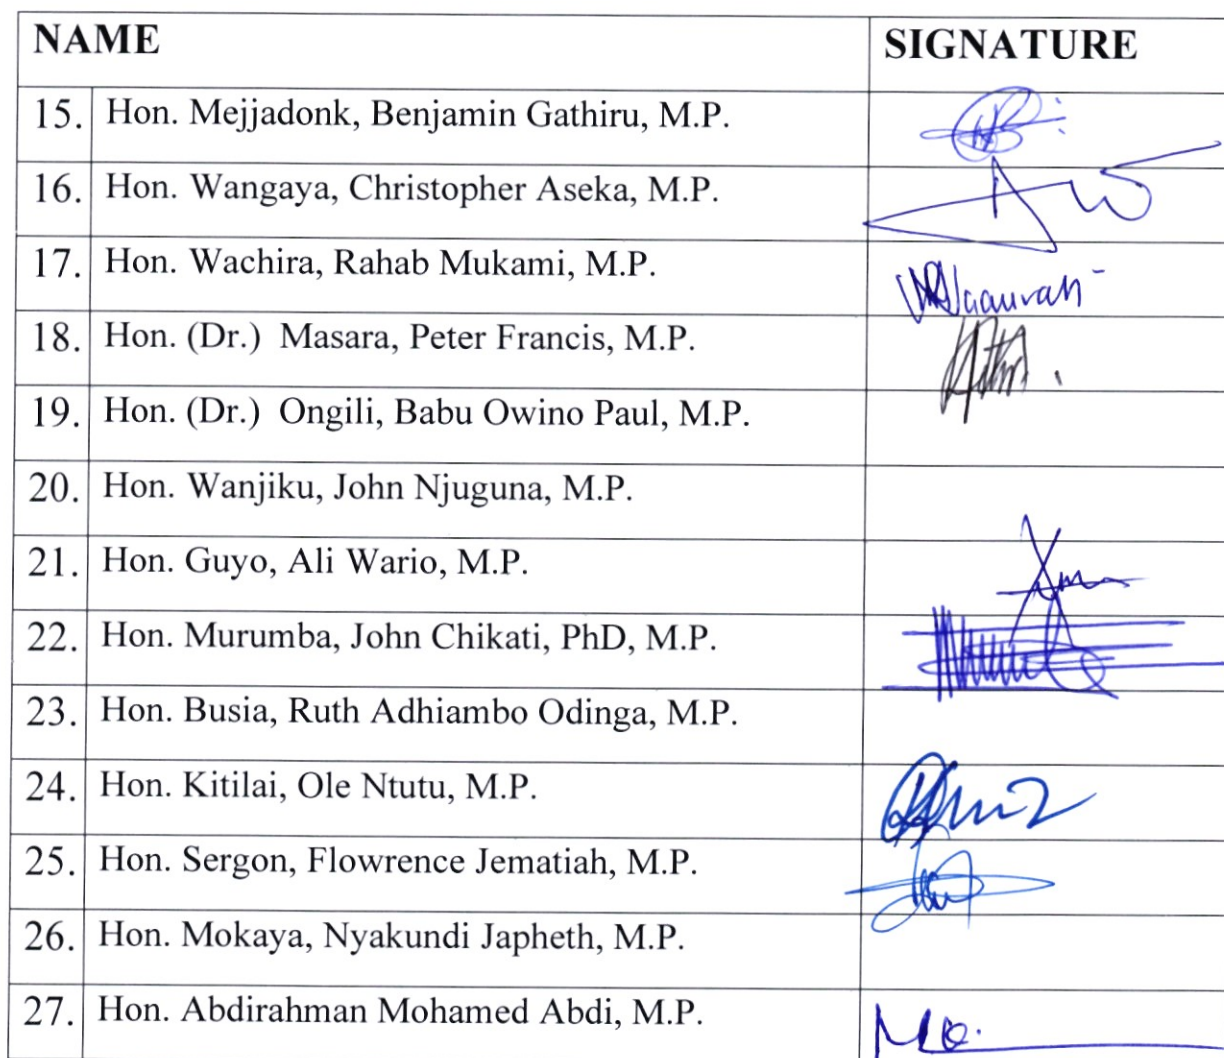 NAME SIGNATURE
15. Hon. Mejjadonk, Benjamin Gathiru, M.P.
16. Hon. Wangaya, Christopher Aseka, M.P.
17. Hon. Wachira, Rahab Mukami, M.P.
18. Hon. (Dr.) Masara, Peter Francis, M.P.
19. Hon. (Dr.) Ongili, Babu Owino Paul, M.P.
20. Hon. Wanjiku, John Njuguna, M.P.
21. Hon. Guyo, Ali Wario, M.P.
22. Hon. Murumba, John Chikati, PhD, M.P.
23. Hon. Busia, Ruth Adhiambo Odinga, M.P.
24. Hon. Kitilai, Ole Ntutu, M.P.
25. Hon. Sergon, Flowrence Jematiah, M.P.
26. Hon. Mokaya, Nyakundi Japheth, M.P.
27. Hon. Abdirahman Mohamed Abdi, M.P.